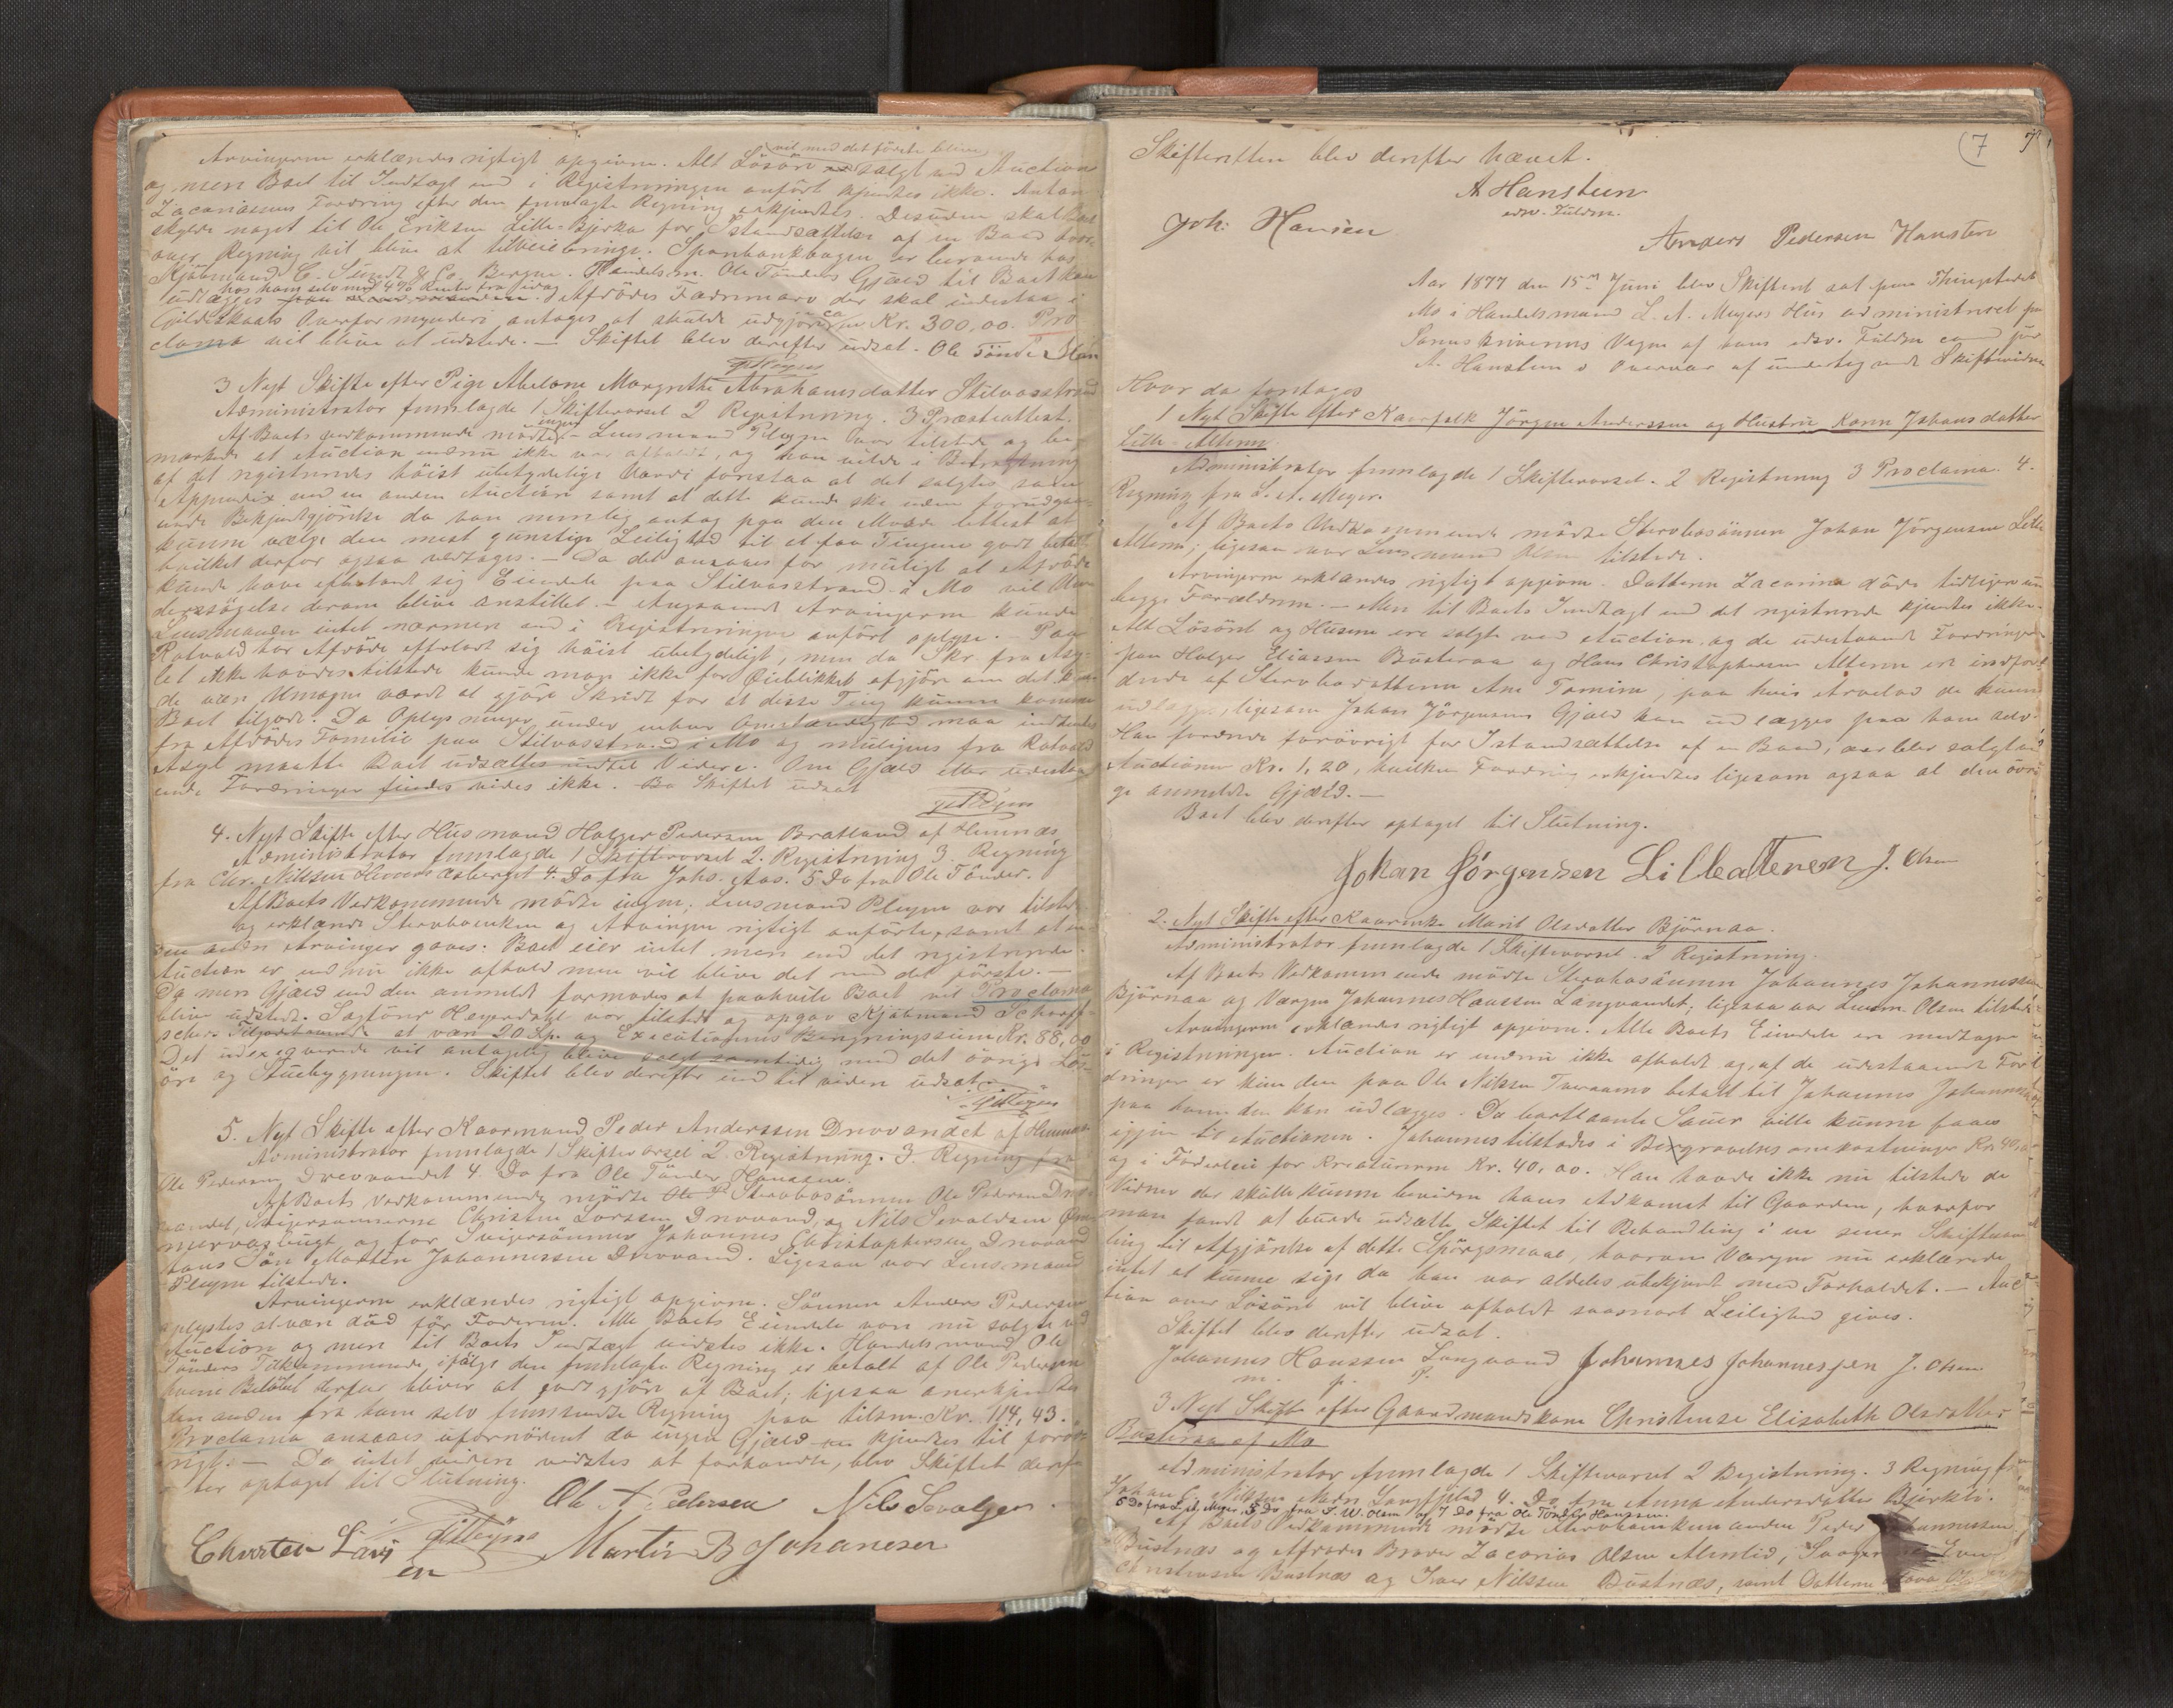 Arvingerne erklæredes rigtigt opgivne. Alt Lösöre vil med det förste blive salgt ved Auction
og mere Boet til Indtægt end i Registreringen anfört kjendtes ikke. Anton
Zacariassens Fordring efter den fremlagte Regning erkjendtes. Desuden skal Boet
skylde noget til Ole Eriksen Lille-Bjerka for Istandsættelse af en Baad hvor-
over Regning vil blive at tilveiebringe. Sparebankbogen er beroende hos
Kjöbmand C. Sundt & Co. Bergen. Handelsm. Ole Tönders Gjæld til Boet kan
udlægges hos ham selv med 4% Renter fra idag. Afdödes Fædrenearv der skal indestaa i
Gildeskaals Overformynderi antages at skulle udgjöre ca Kr. 300,00. Pro
clama vil blive at udstede. — Skiftet blev derefter udsat. Ole Tönder Han
Pleym
3 Nyt Skifte efter Pige Abelone Margrethe Abrahamsdatter Stilvasstrand
Administrator fremlagde 1 Skiftevarsel 2 Registrering. 3 Præsteattest.
Af Boets Vedkommende mödte ingen - Lensmand Pleym var tilstede og be-
mærkede at Auction endnu ikke var afholdt, og han vilde i Betragtning
af det registreredes höist ubetydelige Værdi foreslaa at det salgtes som
Appendix ved en anden Auction samt at dette kunde ske uden forudgaa-
ende Bekjendtgjörelse da han nemlig antog paa den Maade lettest at
kunne vælge den mest gunstige Leilighed til at faa Tingene godt betalt
hvilket derfor ogsaa vedtoges. — Da det ansaaes for muligt at Afdöde
kunde have efterladt sig Eiendele paa Stilvasstrand i Mo vil Un-
dersögelse derom blive anstillet. — Angaaende Arvingerne kunde
Lensmanden intet nærmere end i Registreringen anfört oplyse. — Paa
Rotvold har Afdöde efterladt sig höist ubetydeligt, men da Skr. fra Asy-
let ikke havdes tilstede kunde man ikke for Öieblikket afgjöre om det kun-
de være Umagen værdt at gjöre Skridt for at disse Ting kunne komme
Boet tilgode. Da Oplysninger under enhver Omstændighed maa indhentes
fra Afdödes Familie paa Stilvasstrand i Mo og muligens fra Rotvold
Asyl maatte Boet udsættes indtil Videre. Om Gjæld eller udestaa-
ende Fordringer findes vides ikke. Bo Skiftet udsat
Pleym
4. Nyt Skifte efter Husmand Holger Pedersen Bratland af Hemnæs
Administrator fremlagde 1 Skiftevarsel 2. Registrering 3. Regning
fra Chr. Nilsen Hemnesberget 4. Do fra Johs. Aas. 5 Do fra Ole Tönder.
Af Boets Vedkommende mödte ingen; Lensmand Pleym var tilstede
og erklærede Stervboenken og Arvingerne rigtigt anförte, samt at in-
gen anden Arvinger gaves. Boet eier intet mere end det registrerede.
Auction er endnu ikke afhold men vil blive det med det förste. —
Da mere Gjæld end den anmeldte formodes at paahvile Boet vil Proclama
blive udstedt. Sagförer Heyerdahl var tilstede og opgav Kjöbmand Scharf-
schers Tilgodehavende at være 20 Sp. og Executionens Beregningssum Kr. 88,00
Det udexeqverede vil antagelig blive salgt samtidig med det övrige Lös-
öre og Stuebygningen. Skiftet blev derefter indtil videre udsat
Pleym
5. Nyt Skifte efter Kaarmand Peder Anderssen Drevvandet af Hemnæs
Administrator fremlagde 1 Skiftevarsel 2. Registrering. 3. Regning fra
Ole Pedersen Drevvandet 4. Do fra Ole Tönder Hanssen.
Af Boets Vedkommende mödte Stervbosönnen Ole Pedersen Drev-
vandet, Svigersönnerne Christen Larssen Drevvand, og Nils Sevaldsen
og for Svigersönnen Johannes Christophersen Drevvand
hans Sön Martin Johannessen Drevvand. Ligesaa var Lensmand
Pleym tilstede.
Arvingerne erklæredes rigtigt opgivne. Sönnen Anders Pedersen
oplystes at være död för Faderen. Alle Boets Eiendele vare nu salgte ved
Auction og mere til Boets Indtægt vidstes ikke. Handelsmand Ole
Tönders Tilkommende, ifölge den fremlagte Regning er betalt af Ole Pedersen
hvem Belöbet derfor bliver at godtgjöre af Boet; ligesaa anerkjendtes
den anden fra ham selv fremsendte Regning paa tilsm. Kr. 114,43.
Proclama ansaaes ufornödent da ingen Gjæld kjendtes til foröv-
rigt. — Da intet videre vidstes at forhandle, blev Skiftet deref-
ter optaget til Slutning.
Ole A Pedersen Nils Sevalsen
Chresten Lars Pleym Martin B Johanesen
en
(7
Skifteretten blev derefter hævet.
A Hansteen
edsv. Fuldm.
Joh: Hansen
Anders Pedersen Hansten
Aar 1877 den 15de Juni blev Skifteret sat paa Thingstedet
Mo i Handelsmand L. A. Meyers Hus administreret paa
Sorenskriverens Vegne af hans edsv. Fuldm cand jur
A. Hansteen i Overvær af undertegnede Skiftevidner
Hvor da foretoges
1 Nyt Skifte efter Kaarfolk Jörgen Anderssen og Hustru Karen Johansdatter
Lille-Alteren.
Administrator fremlagde 1 Skiftevarsel. 2 Registrering 3 Proclama. 4.
Regning fra L. A. Meyer.
Af Boets Vedkommende mödte Stervbosönnen Johan Jörgensen Lille
Alteren; ligesaa var Lensmand Olsen tilstede.
Arvingerne erklæredes rigtigt opgivne. Datteren Zacarina döde tidligere end
begge Forældrene. — Mere til Boets Indtægt end det registrerede kjendtes ikke.
Alt Lösöret og Husene ere salgte ved Auction, og de udestaaende Fordringer
paa Holger Eliassen Busteraa og Hans Christophersen Alteren ere indfor-
drede af Stervbodatteren Ane Tomine, paa hvis Arvelod de kunne
udlægges, ligesom Johan Jörgensens Gjæld kan udlægges paa ham selv.
Han fordrede forövrigt for Istandsættelse af en Baad, der blev salgt ved
Auctionen Kr. 1,20, hvilken Fordring erkjendtes ligesom ogsaa al den övri-
ge anmeldte Gjæld. —
Boet blev derefter optaget til Slutning.
Johan Jörgensen Lillealteren J. Olsen
2. Nyt Skifte efter Kaarenke Marit Olsdatter Björnaa.
Administrator fremlagde 1 Skiftevarsel. 2 Registrering.
Af Boets Vedkommende mödte Stervbosönnen Johannes Johannessen
Björnaa og Værgen Johannes Hanssen Langvandet; ligesaa var Lensm. Olsen tilstede
Arvingerne erklæredes rigtigt opgivne. Alle Boets Eiendele ere medtagne
i Registreringen. Auction er endnu ikke afholdt og, af de udestaaende For-
dringer er kun den paa Ole Nilssen Tveraamo betalt til Johannes Johannessen
paa hvem den kan udlægges. Da bortlaante Sauer ville kunne faaes
igjen til Auctionen. Johannes tilstodes i Begravelsesomkostninger Kr. 40,00
og i Föderleie for Kreaturerne Kr. 40,00. Han havde ikke nu tilstede de
Vidner der skulle kunne bevidne hans Adkomst til Gaarden, hvorfor
man fandt at burde udsætte Skiftet til Behandling i en senere Skiftesam-
ling til Afgjörelse af dette Spörgsmaal, hvorom Værgen nu erklærede
intet at kunne sige da han var aldeles ubekjendt med Forholdet. — Auc-
tion over Lösöret vil blive afholdt saasnart Leilighed gives.
Skiftet blev derefter udsat.
Johannes Hanssen Langvand Johannes Johannessen J. Olsen
m. p. P.
3 Nyt Skifte efter Gaardmandskone Christense Elisabeth Olsdatter
Busteraa af Mo
Administrator fremlagde 1 Skiftevarsel 2 Registrering. 3 Regning fra
Johan C. Nilssen Nedre Langfjeld 4. Do fra Anna Andersdatter Bjerkli.
5 Do fra L. A. Meyer, 6 Do fra J. W. Olsen og 7 Do fra Ole Tönder Hanssen.
Af Boets Vedkommende mödte Stervboenkemanden Peder Johannessen
Bustnæs og Afdödes Broder Zacarias Olsen Alenlid,
Christensen Bustnæs og Iver Nilssen Bustnæs, samt Datteren